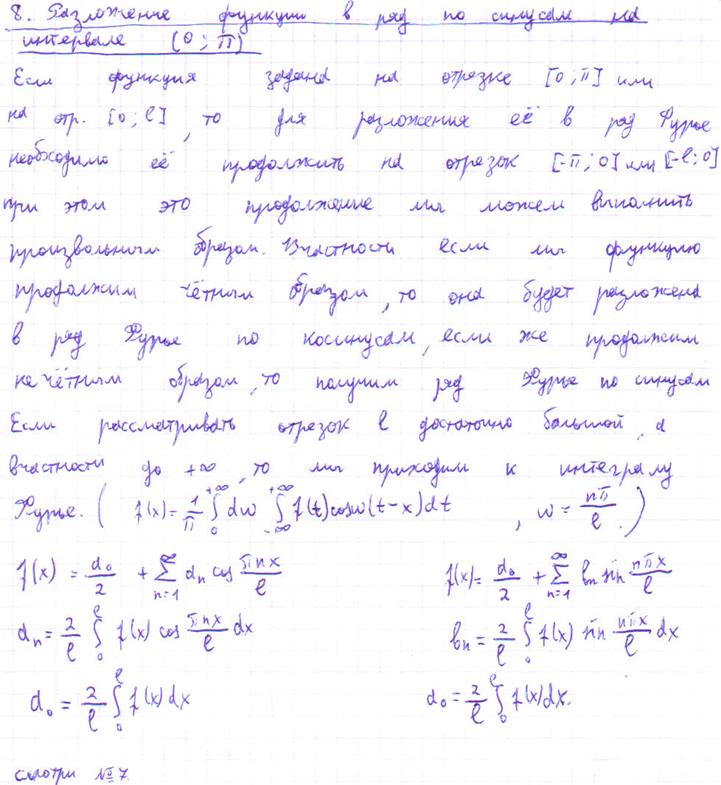 8. Разложение функции в ряд по синусам на
интервале (0; π)
Если функция задана на отрезке [0; π] или
на отр. [0; l], то для разложения её в ряд Фурье
необходимо её продолжить на отрезок [-π; 0] или [-l; 0]
при этом это продолжение мы можем выполнить
произвольным образом. Вчастности если мы функцию
продолжим чётным образом, то она будет разложена
в ряд Фурье по косинусам, если же продолжим
нечётным образом, то получим ряд Фурье по синусам
Если рассматривать отрезок l достаточно большой, а
вчастности до +∞, то мы приходим к интегралу
Фурье. ( f(x) = 1/π ∫₀^{+∞} dw ∫_{-∞}^{+∞} f(t) cosw(t-x)dt , w = nπ/l . )
f(x) = a₀/2 + ∑_{n=1}^{∞} aₙ cos πnx/l f(x) = a₀/2 + ∑_{n=1}^{∞} bₙ sin nπx/l
aₙ = 2/l ∫₀^l f(x) cos πnx/l dx bₙ = 2/l ∫₀^l f(x) sin nπx/l dx
a₀ = 2/l ∫₀^l f(x)dx a₀ = 2/l ∫₀^l f(x)dx.
смотри №7